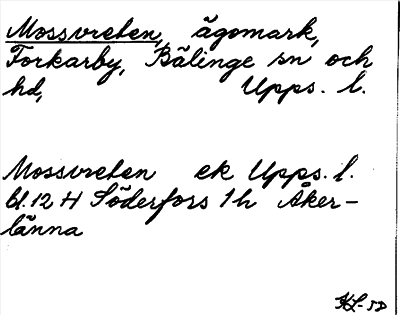 Mossvreten, ägomark,
Forkarby, Bälinge sn och
hd, Upps. l.
Mossvreten ek Upps. l.
bl. 12 H Söderfors 1h Åker-
länna